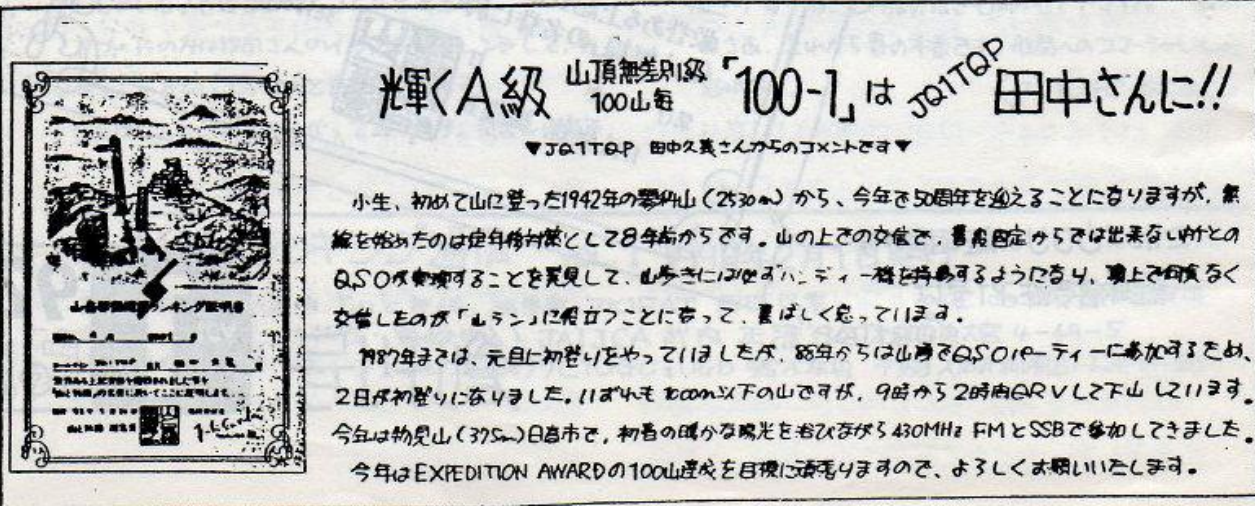 輝くA級 山頂無差別級 100山毎 「100-1」は JQ1TQP 田中さんに!!
▼JQ1TQP 田中久義さんからのコメントです▼
小生、初めて山に登った1942年の蓼科山(2530m)から、今年で50周年を迎えることになりますが、無
線を始めたのは定年後対策として8年前からです。山の上での交信で、普段固定からでは出来ない所との
QSOが実現することを発見して、山歩きには必ずハンディー機を持参するようになり、頂上で何気なく
交信したのが「山ラン」に役立つことになって、喜ばしく思っています。
1987年までは、元旦に初登りをやっていましたが、88年からは山頂でQSOパーティーに参加するため、
2日が初登りになりました。いずれも1000m以下の山ですが、9時から2時間QRVして下山しています。
今年は物見山(375m)日高市で、初春の暖かな陽光を浴びながら430MHz FMとSSBで参加してきました。
今年はEXPEDITION AWARDの100山達成を目標に頑張りますので、よろしくお願いいたします。
ランキング証明書